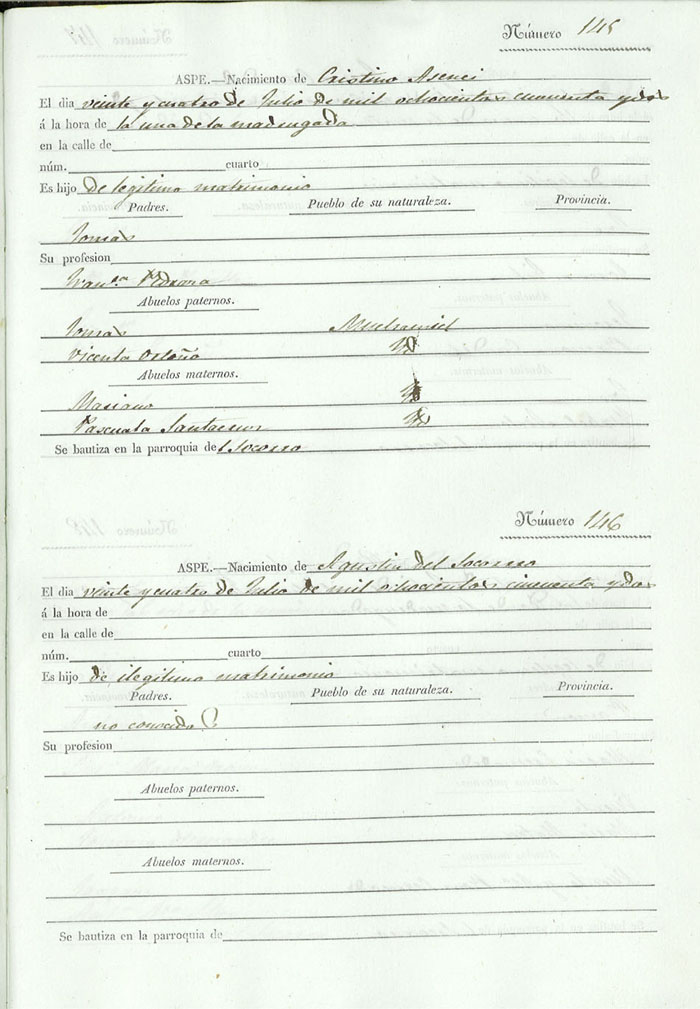 Número 145
ASPE.—Nacimiento de Cristino Asenci
El dia veinte y cuatro de Julio de mil ochocientos cincuenta y dos
á la hora de la una de la madrugada
en la calle de
núm. cuarto
Es hijo de legitimo matrimonio
Padres. Pueblo de su naturaleza. Provincia.
Tomas
Su profesion
Fran.ca
Abuelos paternos.
Tomas
Vicenta
Abuelos maternos.
Mariano
Pascuala
Se bautiza en la parroquia del Socorro
Número 146
ASPE.—Nacimiento de Agustin del Socorro
El dia veinte y cuatro de Julio de mil ochocientos cincuenta y dos
á la hora de
en la calle de
núm. cuarto
Es hijo de ilegitimo matrimonio
Padres. Pueblo de su naturaleza. Provincia.
no conocidos
Su profesion
Abuelos paternos.
Abuelos maternos.
Se bautiza en la parroquia de